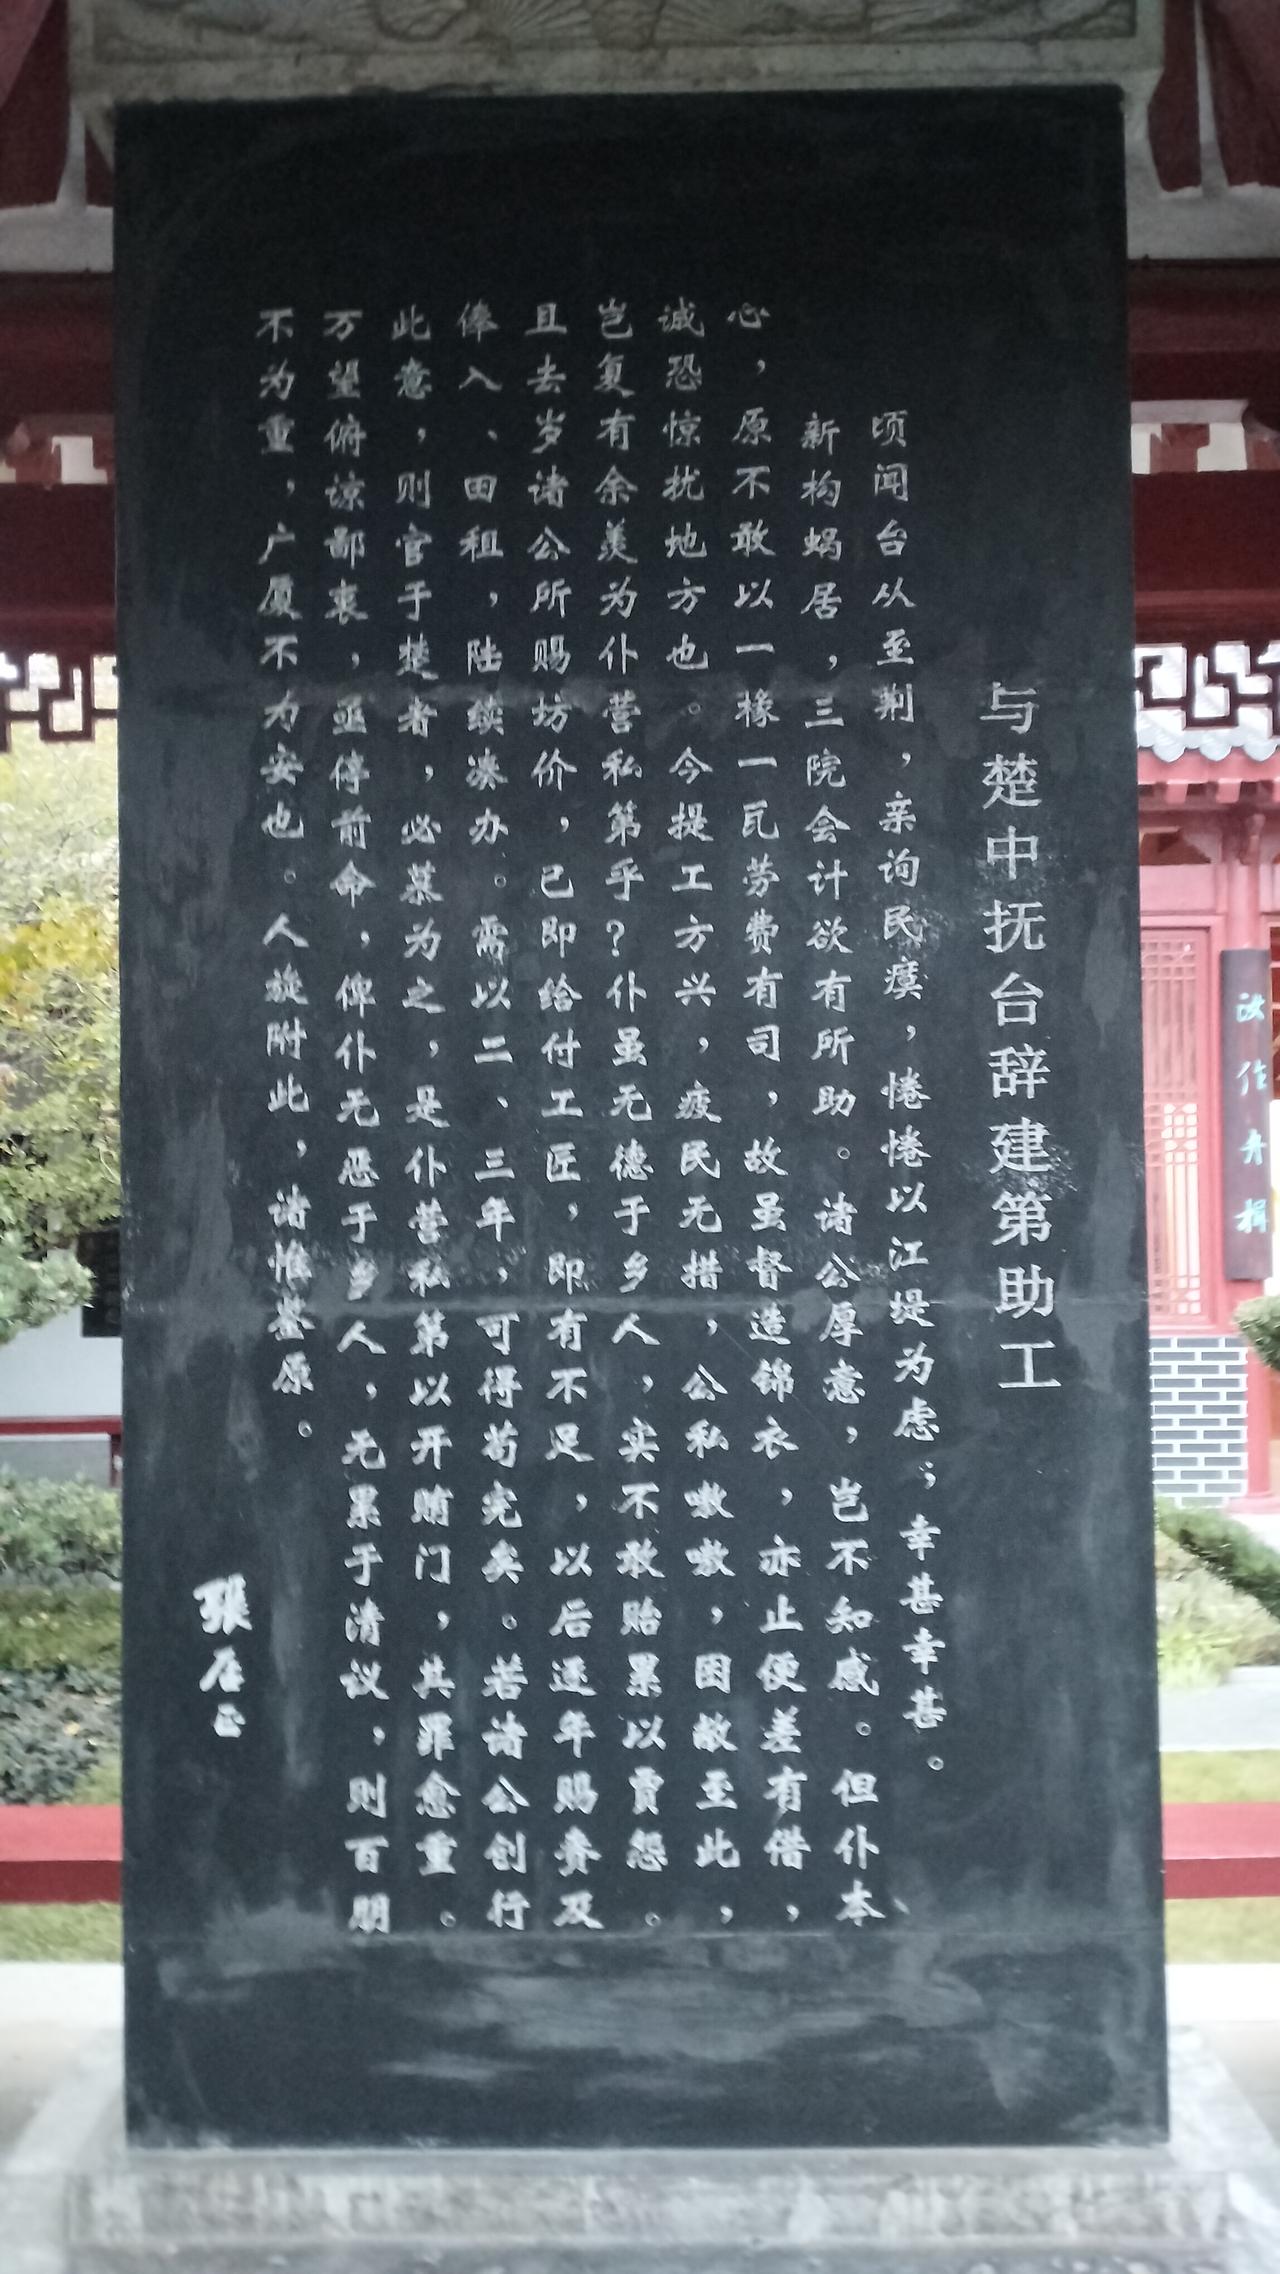 与楚中抚台辞建第助工
顷闻台从至荆，亲询民瘼，惓惓以江堤为虑；幸甚幸甚。
新构蜗居，三院会计欲有所助。诸公厚意，岂不知感。但仆本
心，原不敢以一椽一瓦劳费有司，故虽督造锦衣，亦止便差有借，
诚恐惊扰地方也。今提工方兴，疲民无措，公私嗷嗷，困敝至此，
岂复有余羡为仆营私第乎？仆虽无德于乡人，实不敢贻累以贾怨。
且去岁诸公所赐坊价，已即给付工匠，即有不足，以后逐年赐赉及
俸入、田租，陆续凑办。需以二、三年，可得苟完矣。若诸公创行
此意，则官于楚者，必慕为之，是仆营私第以开贿门，其罪愈重。
万望俯谅鄙衷，亟停前命，俾仆无恶于乡人，无累于清议，则百朋
不为重，广厦不为安也。人旋附此，诸惟鉴原。
張居正